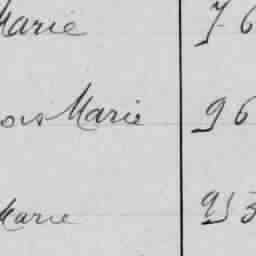 Marie 76
ois Marie 96
Marie 953